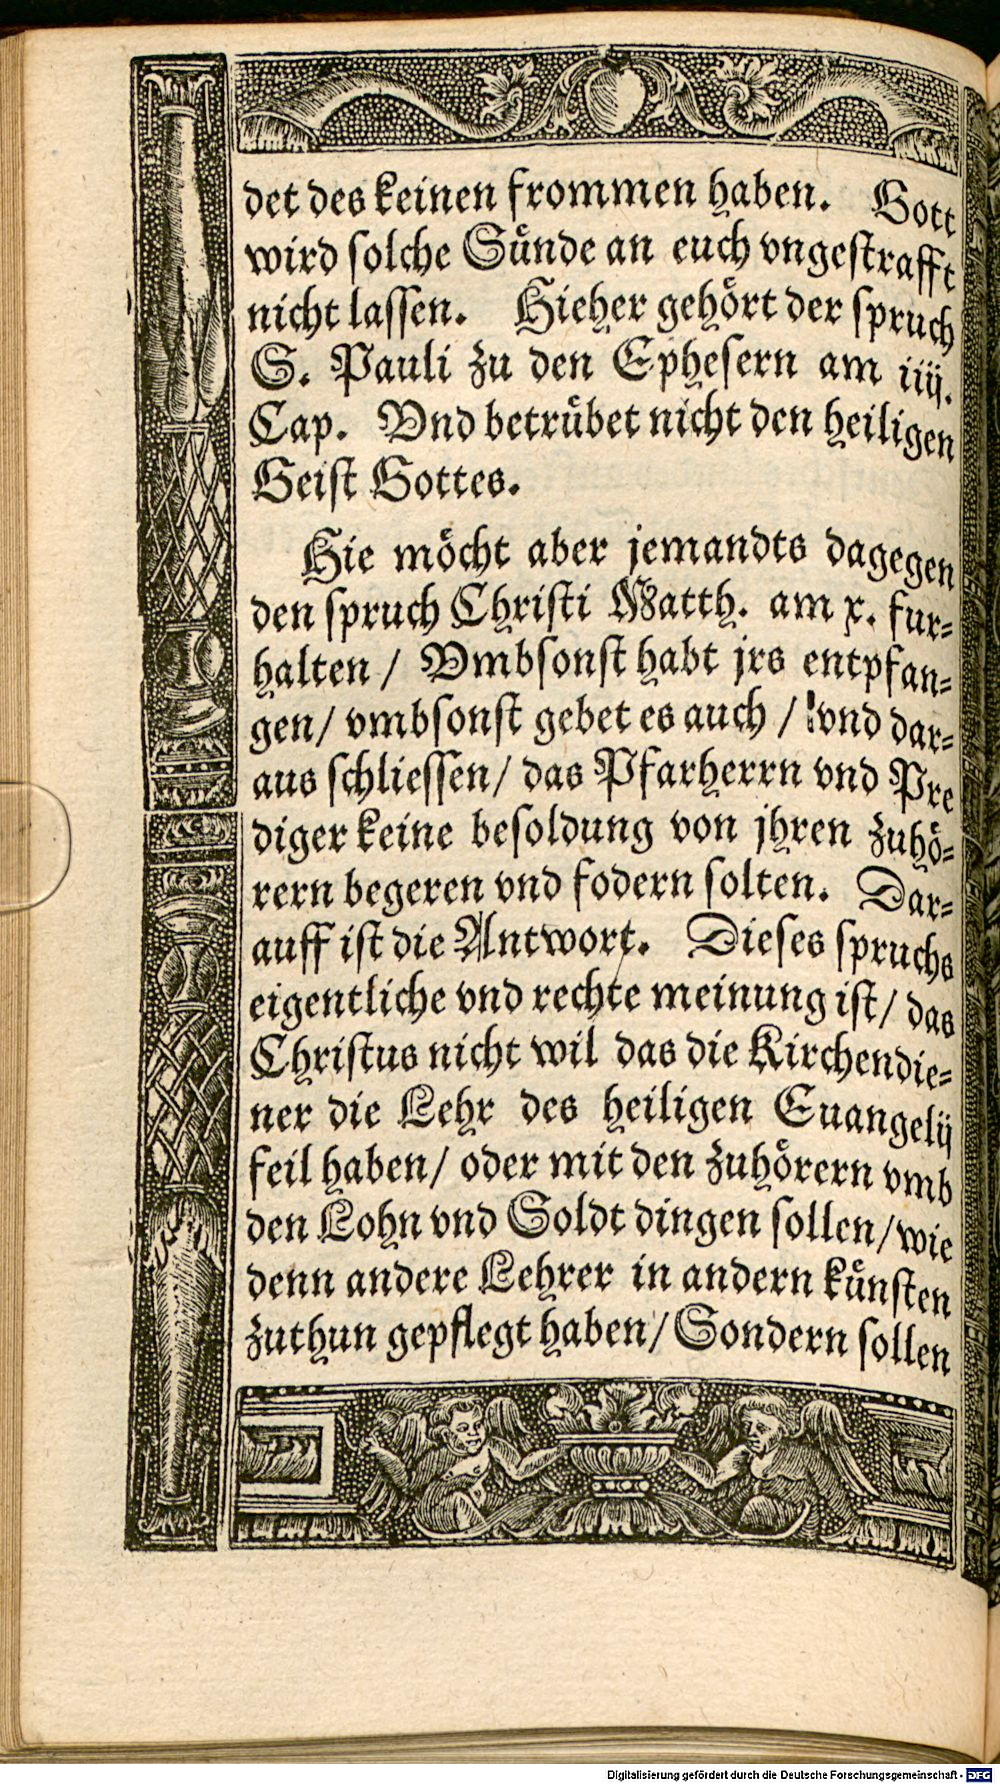 det des keinen frommen haben. Gott
wird solche Sünde an euch vngestrafft
nicht lassen. Hieher gehört der spruch
S. Pauli zu den Ephesern am iiij.
Cap. Vnd betrübet nicht den heiligen
Geist Gottes.
Hie möcht aber jemandts dagegen
den spruch Christi Matth. am x. fur=
halten / Vmbsonst habt jrs entpfan=
gen/ vmbsonst gebet es auch / vnd dar=
aus schliessen/ das Pfarherrn vnd Pre
diger keine besoldung von jhren zuhö=
rern begeren vnd fodern solten. Dar=
auff ist die Antwort. Dieses spruchs
eigentliche vnd rechte meinung ist/ das
Christus nicht wil das die Kirchendie=
ner die Lehr des heiligen Euangelij
feil haben/ oder mit den zuhörern vmb
den Lohn vnd Soldt dingen sollen/ wie
denn andere Lehrer in andern künsten
zuthun gepflegt haben/ Sondern sollen
Digitalisierung gefördert durch die Deutsche Forschungsgemeinschaft - DFG